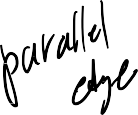 parallel
edge